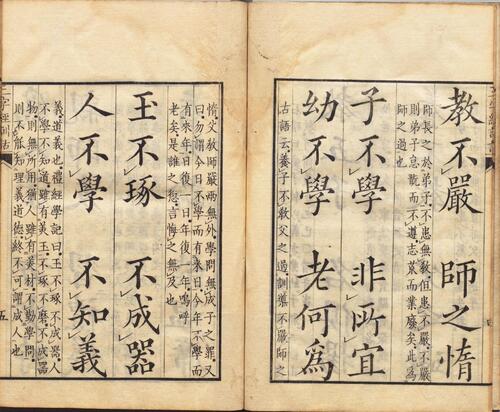 教不嚴 師之惰
師長之於弟子不患無教但患不嚴不嚴
則弟子怠翫而不遵志荒而業廢矣此為
師之過也
子不學 非所宜
幼不學 老何為
古語云養子不教父之過訓導不嚴師之
惰父教師嚴兩無外學問無成子之罪又
曰勿謂今日不學而有來日今年不學而
有來年日後一日年後一年嗚呼
老矣是誰之愆言悔之無及也
玉不琢 不成器
人不學 不知義
義道義也禮經學記曰玉不琢不成器人
不學不知道雖有美玉不琢不磨不成器
物則無所用猶人雖有美材不勤學問
則不能知理義道德終不可謂成人也
三字經訓詁 五